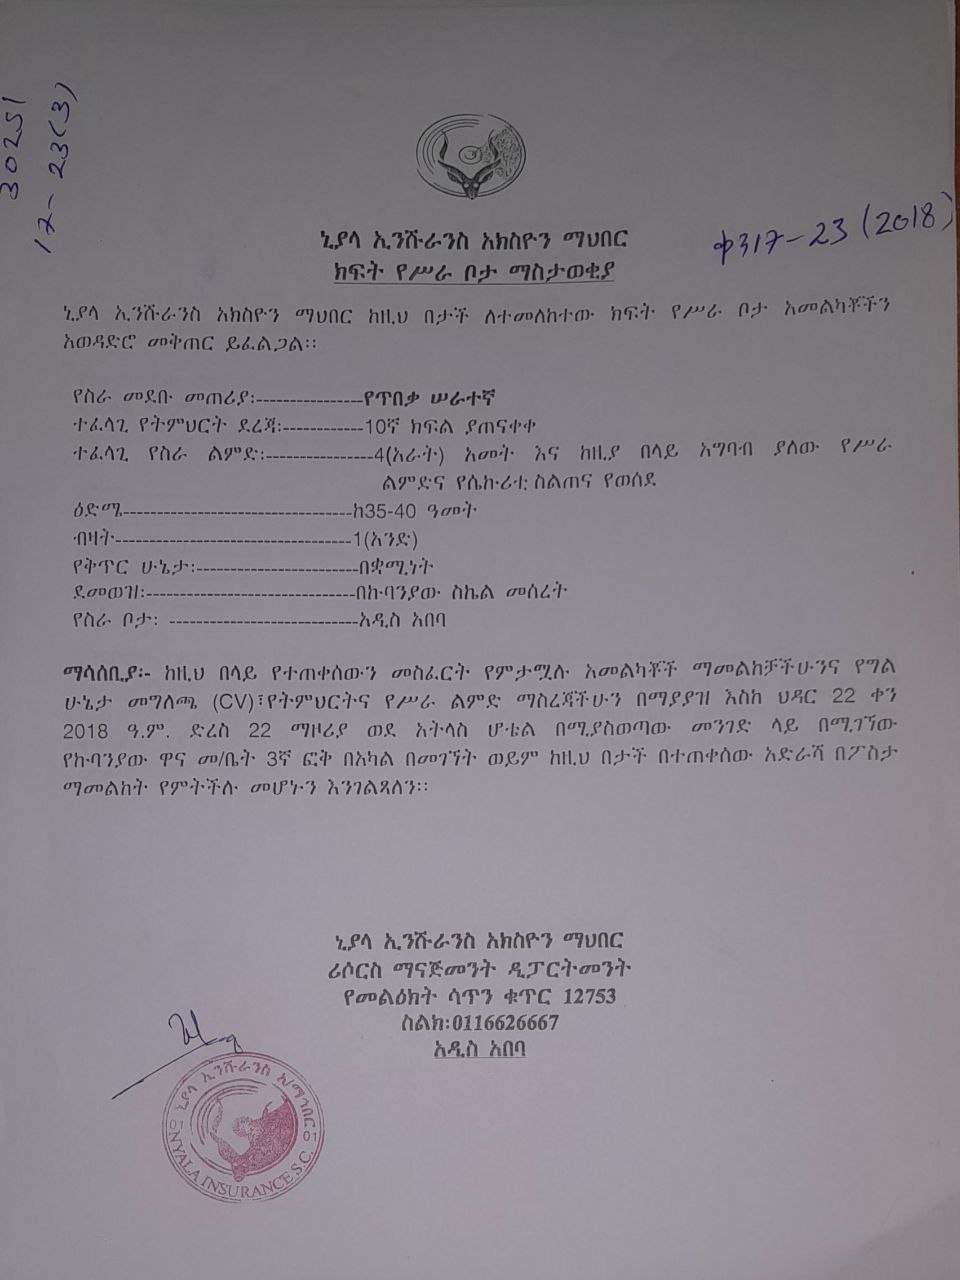 30251
17-23(3)
ቀ317-23 (2018)
ኒያላ ኢንሹራንስ አክስዮን ማህበር
ክፍት የሥራ ቦታ ማስታወቂያ
ኒያላ ኢንሹራንስ አክስዮን ማህበር ከዚህ በታች ለተመለከተው ክፍት የሥራ ቦታ አመልካቾችን
አወዳድሮ መቅጠር ይፈልጋል፡፡
የስራ መደቡ መጠሪያ፡----------------የጥበቃ ሠራተኛ
ተፈላጊ የትምህርት ደረጃ፡------------10ኛ ክፍል ያጠናቀቀ
ተፈላጊ የስራ ልምድ፡----------------4(አራት) አመት እና ከዚያ በላይ አግባብ ያለው የሥራ
ልምድና የሴኩሪቲ ስልጠና የወሰደ
ዕድሜ----------------------------------ከ35-40 ዓመት
ብዛት-----------------------------------1(አንድ)
የቅጥር ሁኔታ፡------------------------በቋሚነት
ደመወዝ፡-------------------------------በኩባንያው ስኬል መሰረት
የስራ ቦታ፡ ----------------------------አዲስ አበባ
ማሳሰቢያ፡- ከዚህ በላይ የተጠቀሰውን መስፈርት የምታሟሉ አመልካቾች ማመልከቻችሁንና የግል
ሁኔታ መግለጫ (CV)፣የትምህርትና የሥራ ልምድ ማስረጃችሁን በማያያዝ እስከ ህዳር 22 ቀን
2018 ዓ.ም. ድረስ 22 ማዞሪያ ወደ አትላስ ሆቴል በሚያስወጣው መንገድ ላይ በሚገኘው
የኩባንያው ዋና መ/ቤት 3ኛ ፎቅ በአካል በመገኘት ወይም ከዚህ በታች በተጠቀሰው አድራሻ በፖስታ
ማመልከት የምትችሉ መሆኑን እንገልጻለን፡፡
ኒያላ ኢንሹራንስ አክስዮን ማህበር
ሪሶርስ ማናጅመንት ዲፓርትመንት
የመልዕክት ሳጥን ቁጥር 12753
ስልክ፡0116626667
አዲስ አበባ
ኒያላ ኢንሹራንስ አ/ማኅበር
01 01
NYALA INSURANCE S.C.